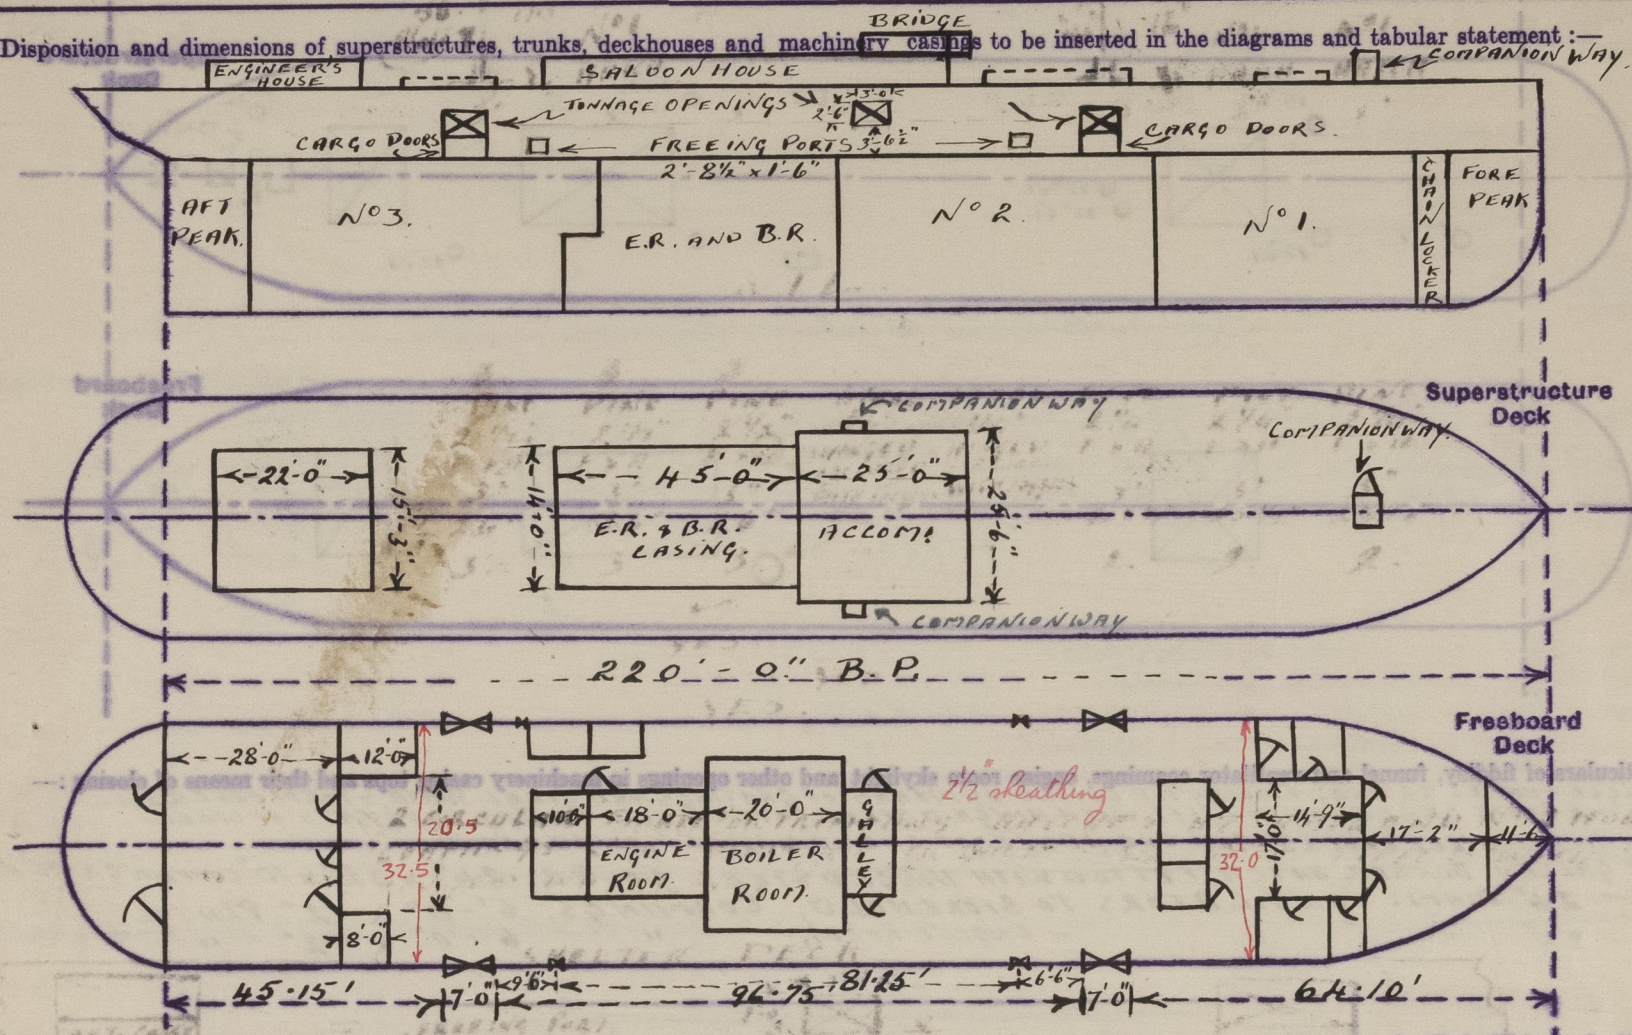 BRIDGE
Disposition and dimensions of superstructures, trunks, deckhouses and machinery casings to be inserted in the diagrams and tabular statement :—
COMPANION WAY.
ENGINEER'S
HOUSE
SALOON HOUSE
TONNAGE OPENINGS
3'-0"
2'-6"
CARGO DOORS
FREEING PORTS
3'-6½"
CARGO DOORS.
2'-8½" x 1'-6"
AFT
PEAK.
Nº 3.
E.R. AND B.R.
Nº 2.
Nº 1.
CHAIN LOCKER
FORE
PEAK
Superstructure
Deck
COMPANIONWAY
COMPANIONWAY.
22'-0"
15'-3"
14'-0"
45'-0"
25'-0"
25'-6"
E.R. & B.R.
CASING.
ACCOM!
COMPANIONWAY
220'-0" B.P.
Freeboard
Deck
28'-0"
12'-0"
20.5
32.5
8'-0"
10'0"
18'-0"
20'-0"
ENGINE
ROOM.
BOILER
ROOM.
GALLEY
2½" sheathing
32.0
17'0"
14'-9"
17'-2"
11'-6"
45.15'
7'-0"
9'-6"
96.75
81.25'
6'-6"
7'-0"
64.10'